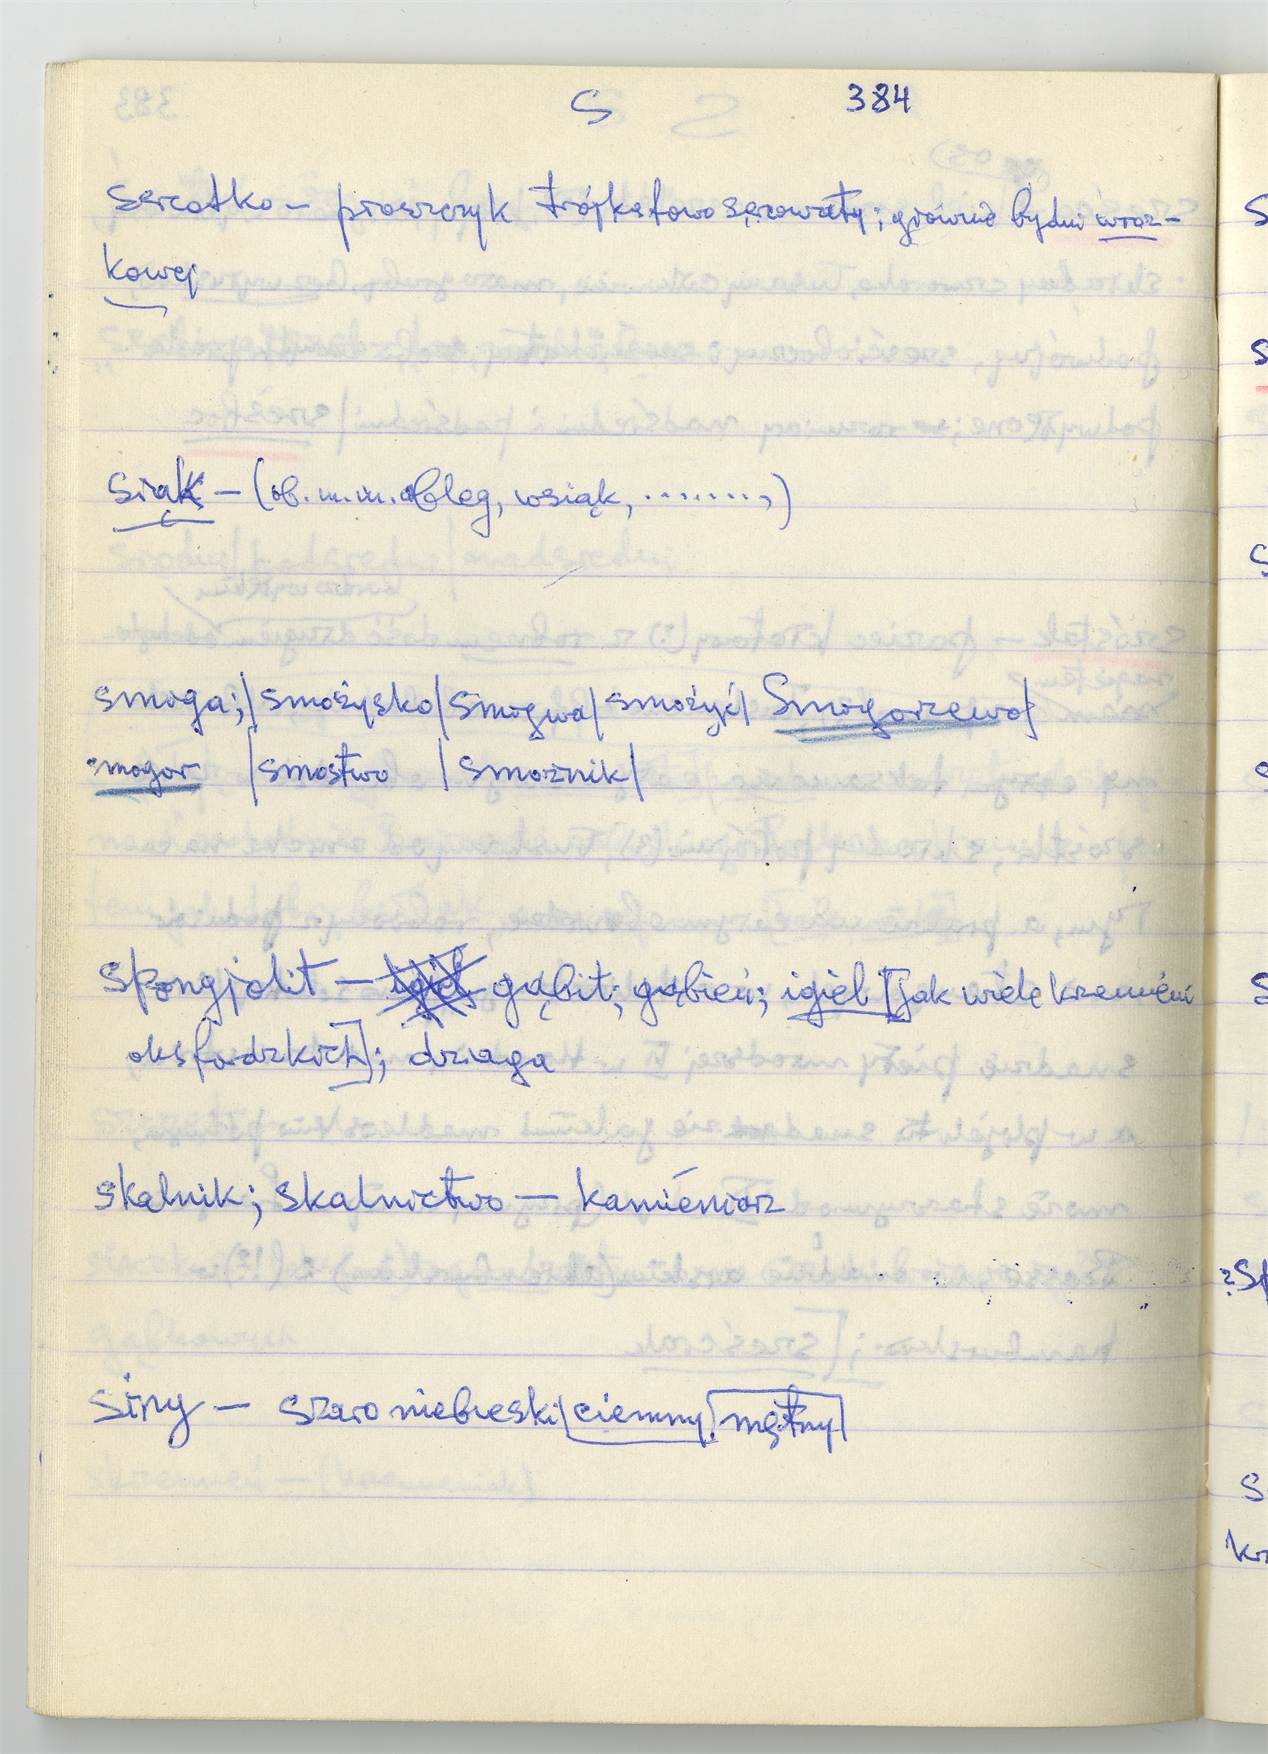 S 384
sercatko – płoszczyk trójkątowo sercowaty; głównie bydni wroz-
kowej
siąk – (ob. m.in. obleg, wsiąk, ........,)
smuga;/ smożysko/ smogwa/ smożyć/ Smogorzewo/
smogor /smostwo / smożnik/
spongjolit – gąbit; gąbień; igieł [jak wiele krzemieni
oksfordzkich]; dziaga
skalnik; skalnictwo – kamieniarz
siny – szaro niebieski/ciemny, mętny/